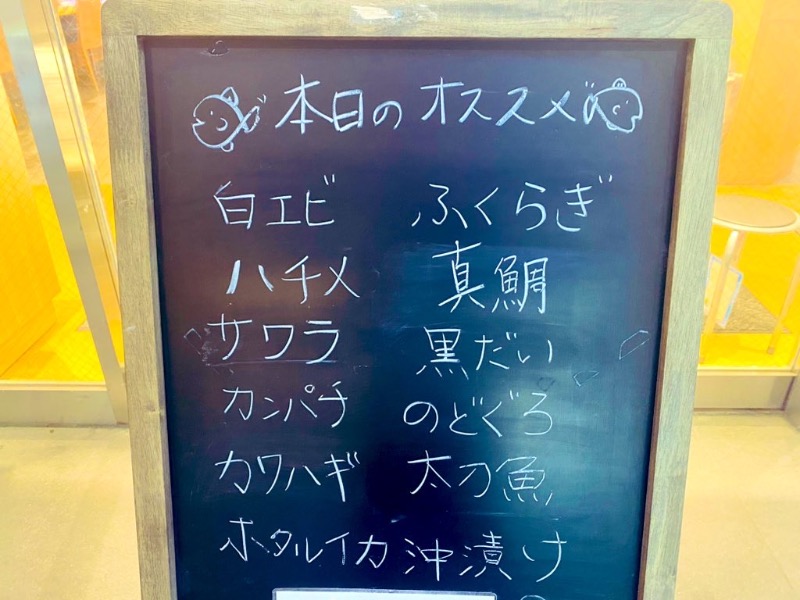 本日のオススメ
白エビ ふくらぎ
ハチメ 真鯛
サワラ 黒だい
カンパチ のどぐろ
カワハギ 太刀魚
ホタルイカ沖漬け